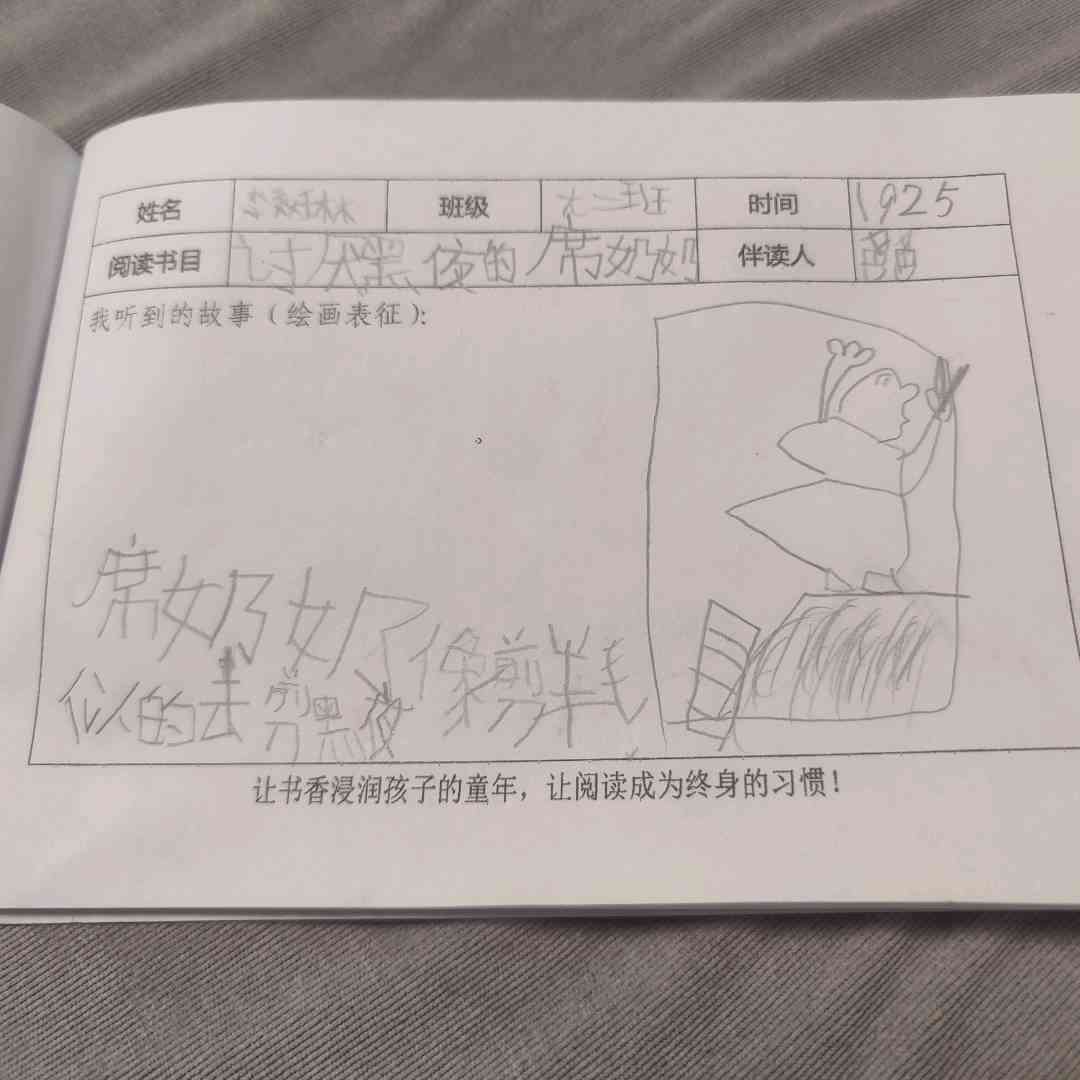 姓名 班级 大二班 时间 1925
阅读书目 讨厌黑夜的席奶奶 伴读人
我听到的故事（绘画表征）：
席奶奶了像剪羊毛
似人的去剪黑夜
让书香浸润孩子的童年，让阅读成为终身的习惯！